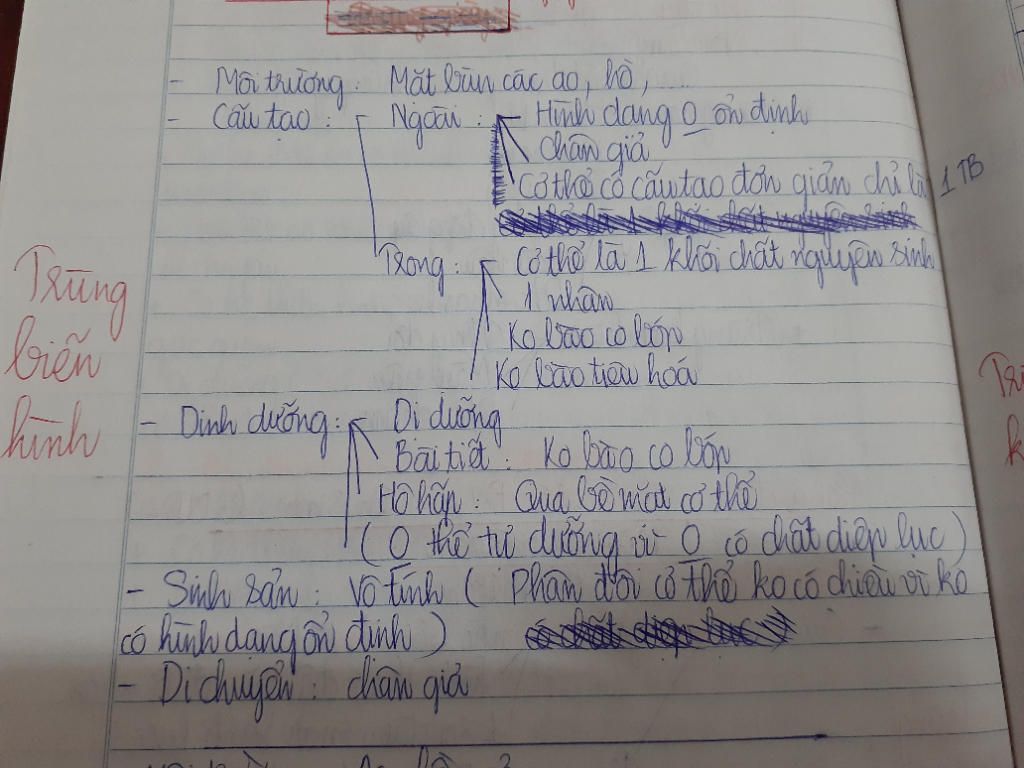 - Môi trường : Mặt bùn các ao, hồ, .....
- Cấu tạo : Ngoài : Hình dạng 0 ổn định
chân giả
Cơ thể có cấu tạo đơn giản chỉ là 1 TB
Trong : Cơ thể là 1 khối chất nguyên sinh
1 nhân
Ko bào co bóp
Ko bào tiêu hoá
Trùng
biến
hình
- Dinh dưỡng : Dị dưỡng
Bài tiết : Ko bào co bóp
Hô hấp : Qua bề mặt cơ thể
( 0 thể tự dưỡng vì 0 có chất diệp lục )
- Sinh sản : Vô tính ( Phân đôi cơ thể ko có chiều vì ko
có hình dạng ổn định )
- Di chuyển : chân giả